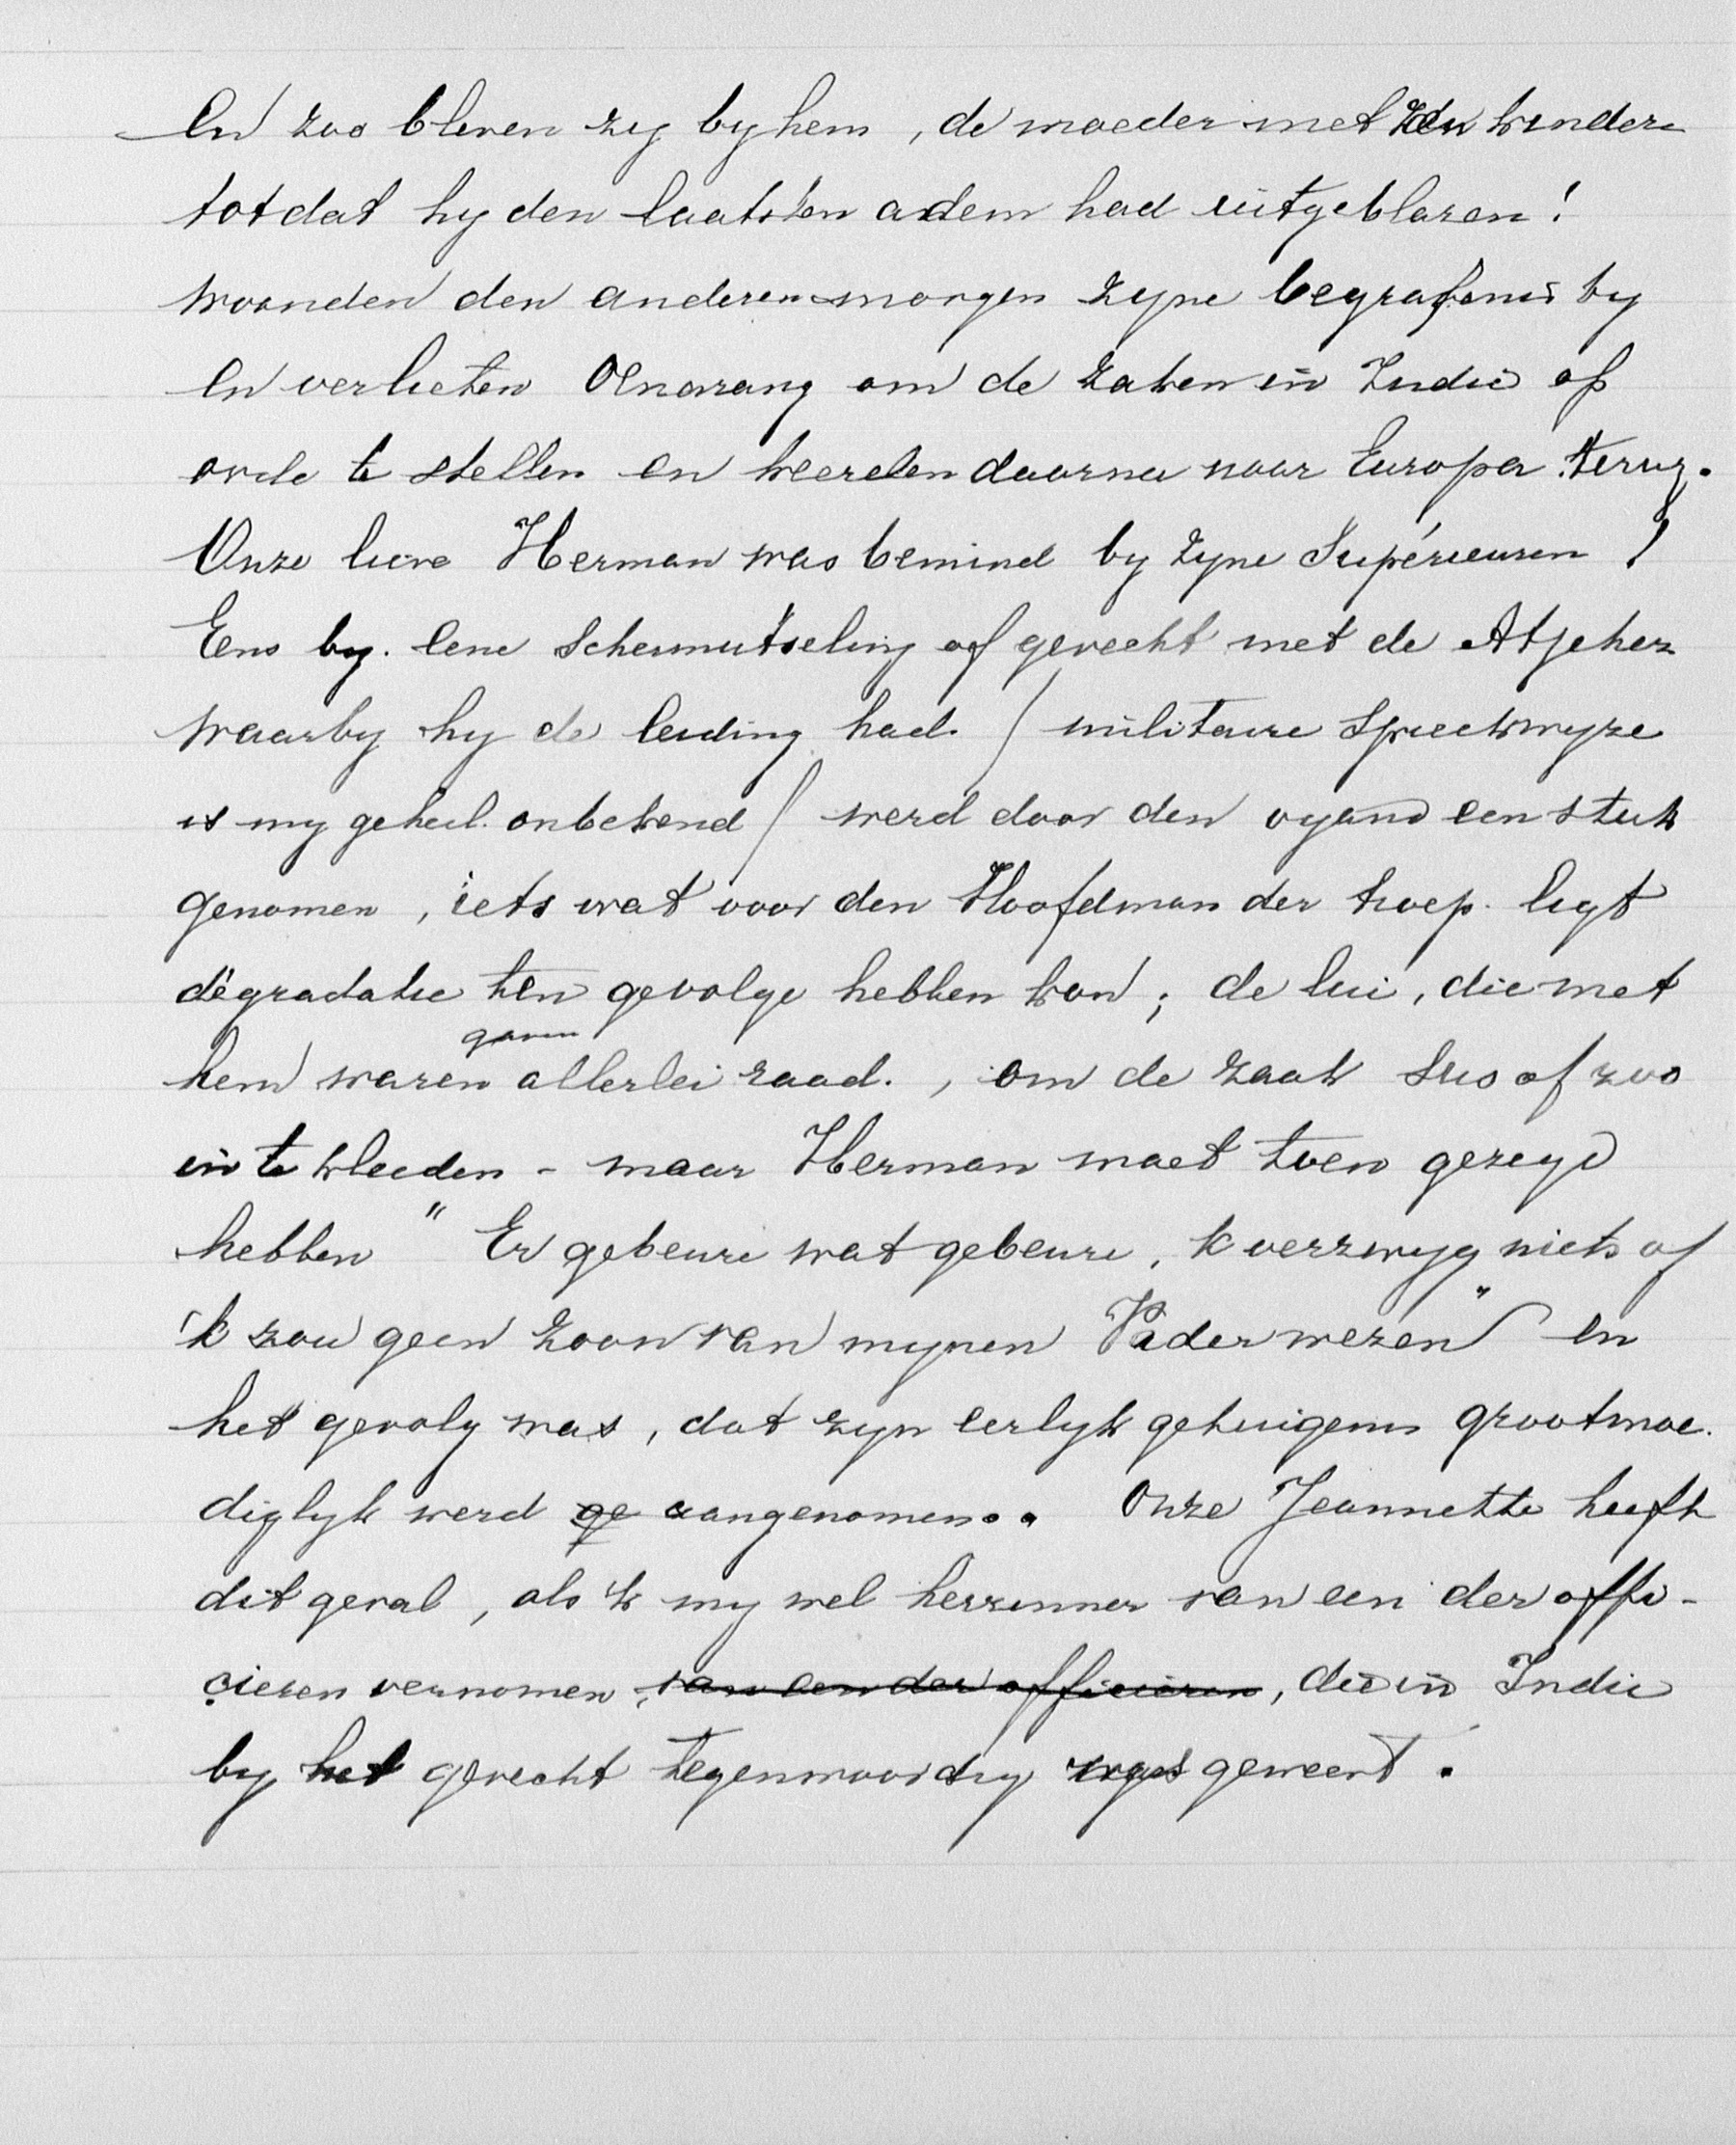 En zoo bleven zy by hem, de moeder met den kinder
totdat hy den laatsten adem had uitgeblazen!
woonden den anderen morgen zyne begrafenis by
En verlieten Oenarang om de zaken in Indie op
orde te stellen en keerden daarna naar Europa terug.
Onze lieve Herman was bemind by zyne Supérieuren!
Eens by. eene Schermutseling of gevecht met de Atjeher
waarby hy de leiding had. / militaire Spreekwyze
is my geheel. onbekend / werd door den vyand een stuk
genomen, iets wat voor den Hoofdman der troep. ligt
dégradatie ten gevolge hebben kon; de lui, die met
hem waren gaven allerlei raad., om de zaak sus of zoo
in te kleeden - maar Herman moet toen gezegd
hebben " Er gebeure wat gebeure, k verzwyg niets of
'k zou geen zoon van mynen Vader wezen" en
het gevolg was, dat zyn eerlyk getuigenis grootmoe.
diglyk werd ge aangenomen.. Onze Jeannette heeft
dit geval, als 'k my wel herzinner van een der offi-
cieren vernomen, van een der officieren, die in Indie
by het gevecht tegenwoordig was geweest.